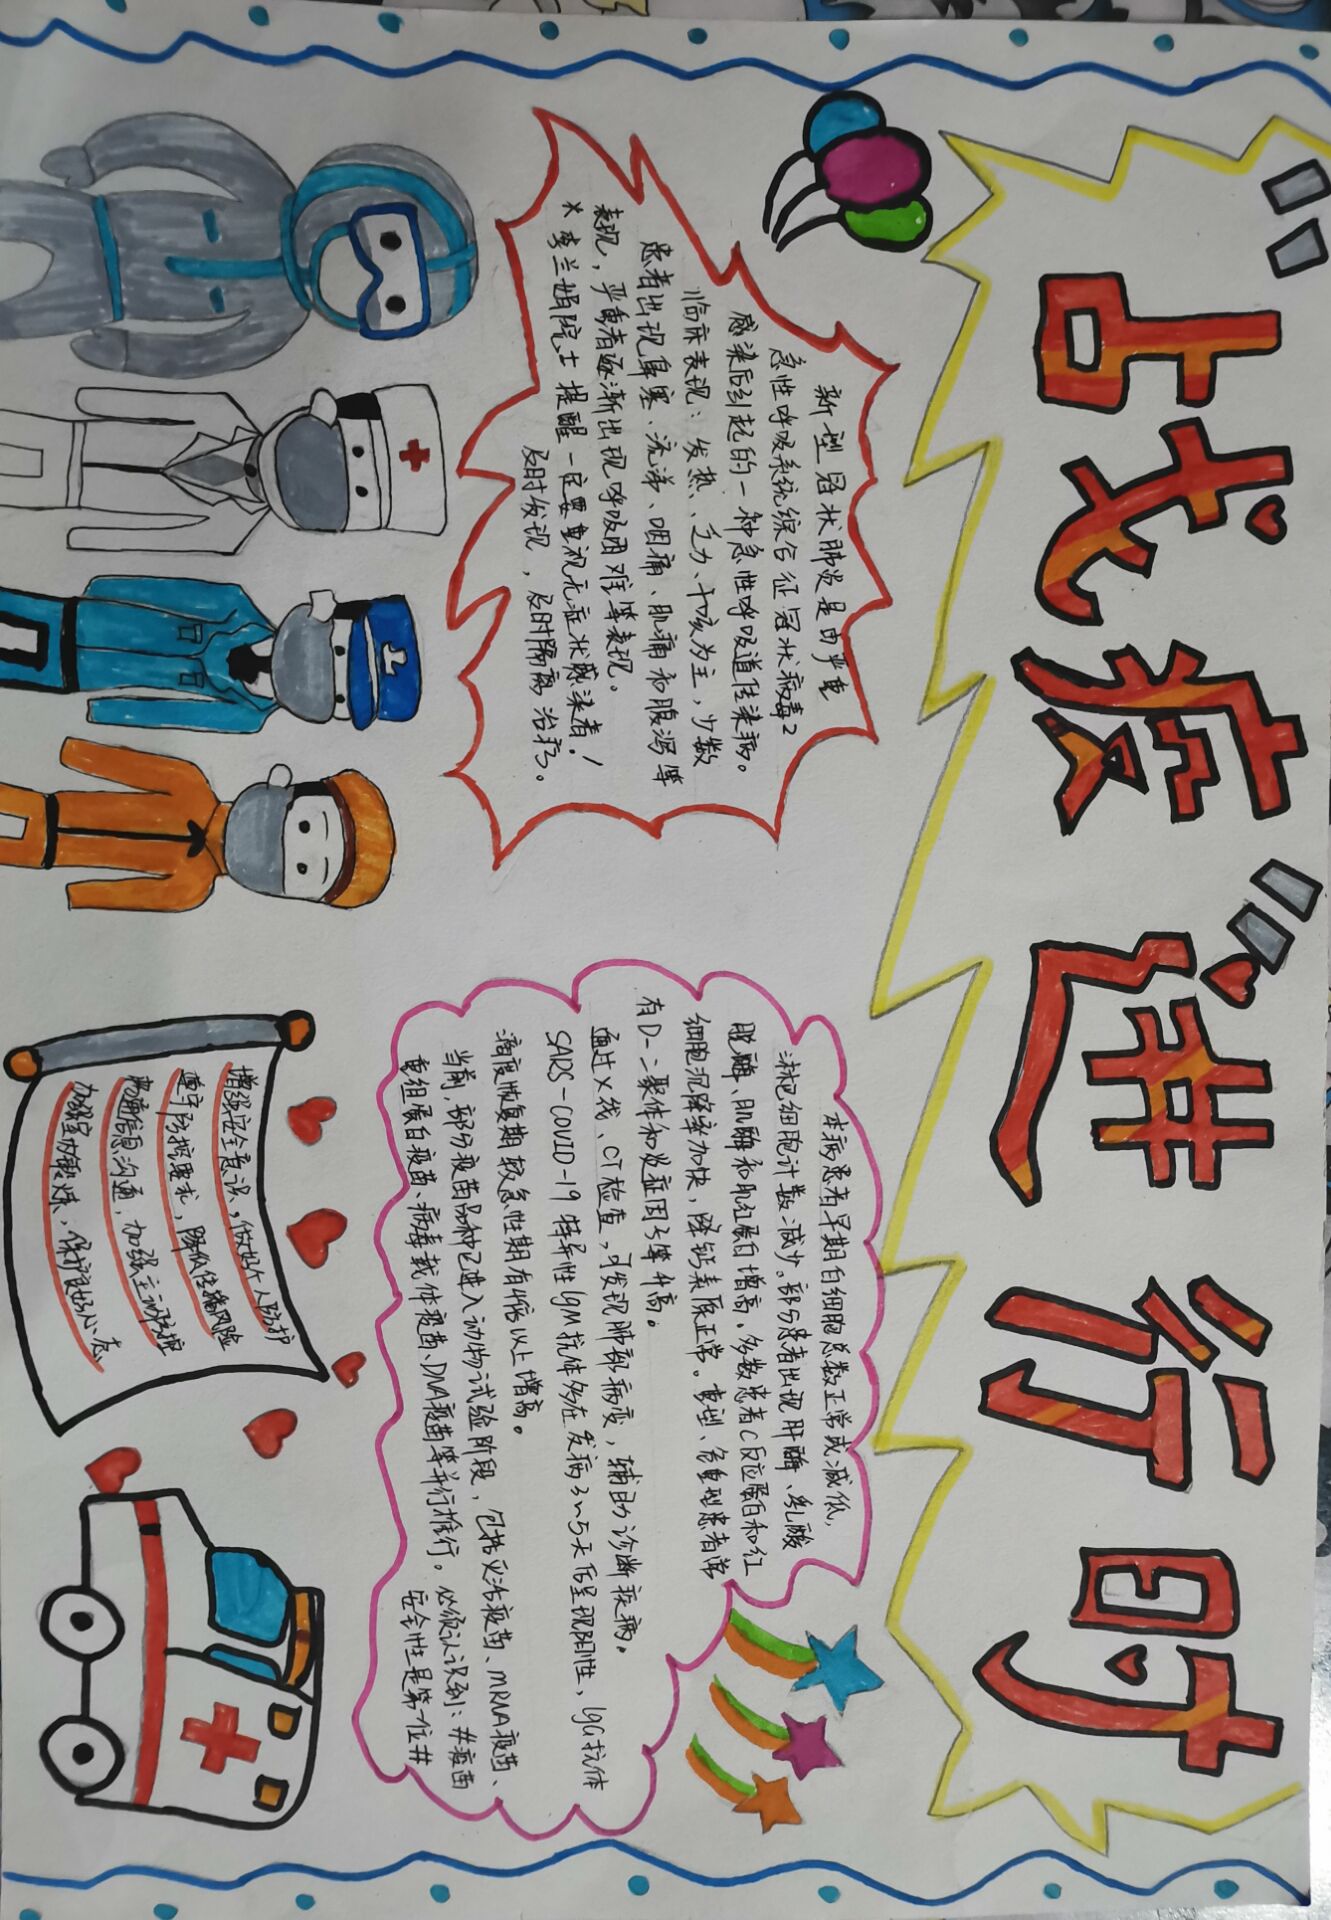 “战疫”进行时
新型冠状肺炎是由严重
急性呼吸系统综合征冠状病毒2
感染后引起的一种急性呼吸道传染病。
临床表现：发热、乏力、干咳为主，少数
患者出现鼻塞、流涕、咽痛、肌痛和腹泻等
表现，严重者逐渐出现呼吸困难等表现。
* 李兰娟院士提醒一定要重视无症状感染者！
及时发现，及时隔离治疗。
本病患者早期白细胞总数正常或减低，
淋巴细胞计数减少。部分患者出现肝酶、乳酸
脱酶、肌酶和肌红蛋白增高。多数患者C反应蛋白和红
细胞沉降率加快，降钙素原正常。重型、危重型患者常
有D-二聚体和炎症因子等升高。
通过X线、CT检查，可发现肺部病变，辅助诊断疾病。
SARS-COVID-19特异性IgM抗体多在发病3~5天后呈现阳性，IgG抗体
滴度恢复期较急性期有4倍以上增高。
当前，部分疫苗品种已进入动物试验阶段，包括灭活疫苗、mRNA疫苗、
重组蛋白疫苗、病毒载体疫苗、DNA疫苗等并行推行。必须认识到：#疫苗
安全性是第一位#
增强安全意识，做好个人防护
遵守防控要求，降低传播风险
畅通信息沟通，加强主动防护
加强室内锻炼，保持良好心态